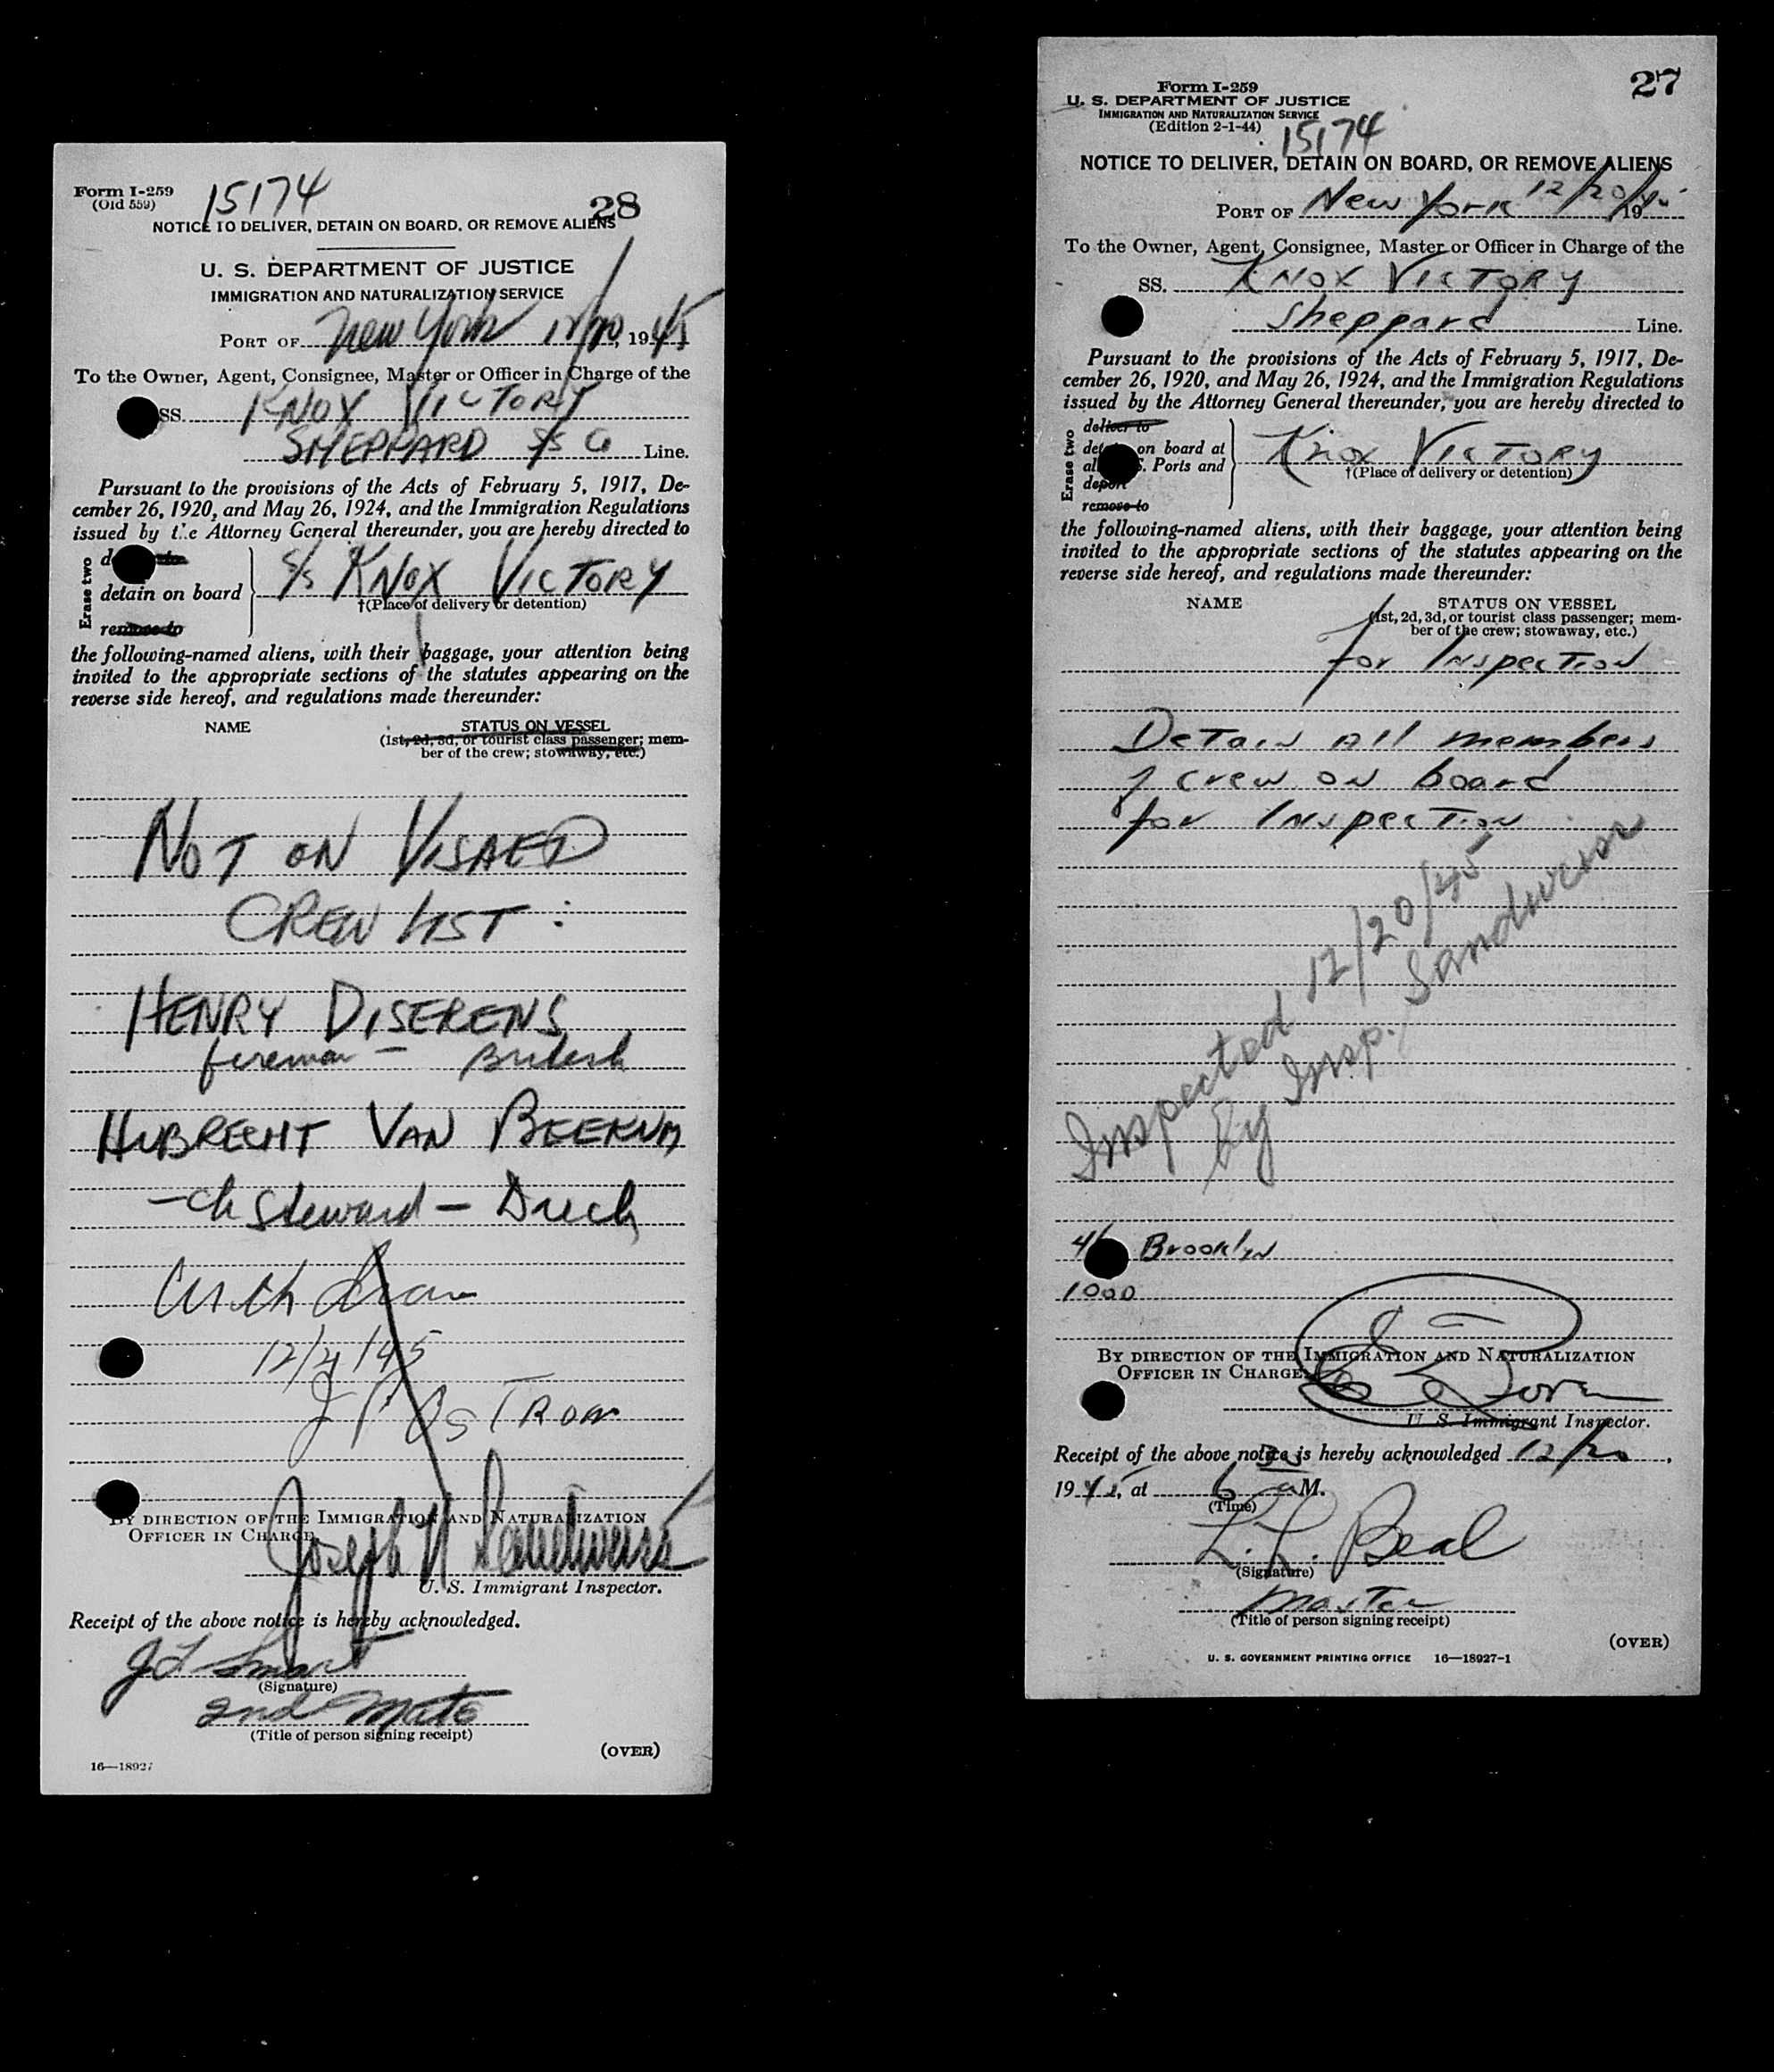 Form I-259
(Old 559)
15174
28
NOTICE TO DELIVER, DETAIN ON BOARD, OR REMOVE ALIENS
U. S. DEPARTMENT OF JUSTICE
IMMIGRATION AND NATURALIZATION SERVICE
PORT OF New York 12/20, 1945
To the Owner, Agent, Consignee, Master or Officer in Charge of the
SS. KNOX VICTORY
SHEPPARD S/S Co Line.
Pursuant to the provisions of the Acts of February 5, 1917, De-
cember 26, 1920, and May 26, 1924, and the Immigration Regulations
issued by the Attorney General thereunder, you are hereby directed to
Erase two
to
detain on board
remove to
S/S KNOX VICTORY
†(Place of delivery or detention)
the following-named aliens, with their baggage, your attention being
invited to the appropriate sections of the statutes appearing on the
reverse side hereof, and regulations made thereunder:
NAME STATUS ON VESSEL
(1st, 2d, 3d, or tourist class passenger; mem-
ber of the crew; stowaway, etc.)
NOT ON VISAED
CREW LIST :
HENRY DISERENS
fireman - British
HUBRECHT VAN BEEKUM
- ch steward - Duch
With drawn
12/21/45
J P OSTROW
BY DIRECTION OF THE IMMIGRATION AND NATURALIZATION
OFFICER IN CHARGE
Joseph N Sandweiss
U. S. Immigrant Inspector.
Receipt of the above notice is hereby acknowledged.
J L Smart
(Signature)
2nd Mate
(Title of person signing receipt)
(OVER)
16—18927
Form I-259
27
U. S. DEPARTMENT OF JUSTICE
IMMIGRATION AND NATURALIZATION SERVICE
(Edition 2-1-44)
15174
NOTICE TO DELIVER, DETAIN ON BOARD, OR REMOVE ALIENS
PORT OF New York 12/20/, 1945
To the Owner, Agent, Consignee, Master or Officer in Charge of the
SS. KNOX VICTORY
Sheppard Line.
Pursuant to the provisions of the Acts of February 5, 1917, De-
cember 26, 1920, and May 26, 1924, and the Immigration Regulations
issued by the Attorney General thereunder, you are hereby directed to
Erase two
deliver to
on board at
Ports and
deport
remove to
Knox VICTORY
†(Place of delivery or detention)
the following-named aliens, with their baggage, your attention being
invited to the appropriate sections of the statutes appearing on the
reverse side hereof, and regulations made thereunder:
NAME STATUS ON VESSEL
(1st, 2d, 3d, or tourist class passenger; mem-
ber of the crew; stowaway, etc.)
for Inspection
Detain All members
of crew on board
for Inspection
Inspected 12/20/45
by Insp. Sandweiss
Brooklyn
1000
BY DIRECTION OF THE IMMIGRATION AND NATURALIZATION
OFFICER IN CHARGE
U. S. Immigrant Inspector.
Receipt of the above notice is hereby acknowledged 12/20,
1945, at 6 30 aM.
(Time)
L. L. Beal
(Signature)
Master
(Title of person signing receipt)
(OVER)
U. S. GOVERNMENT PRINTING OFFICE 16—18927-1